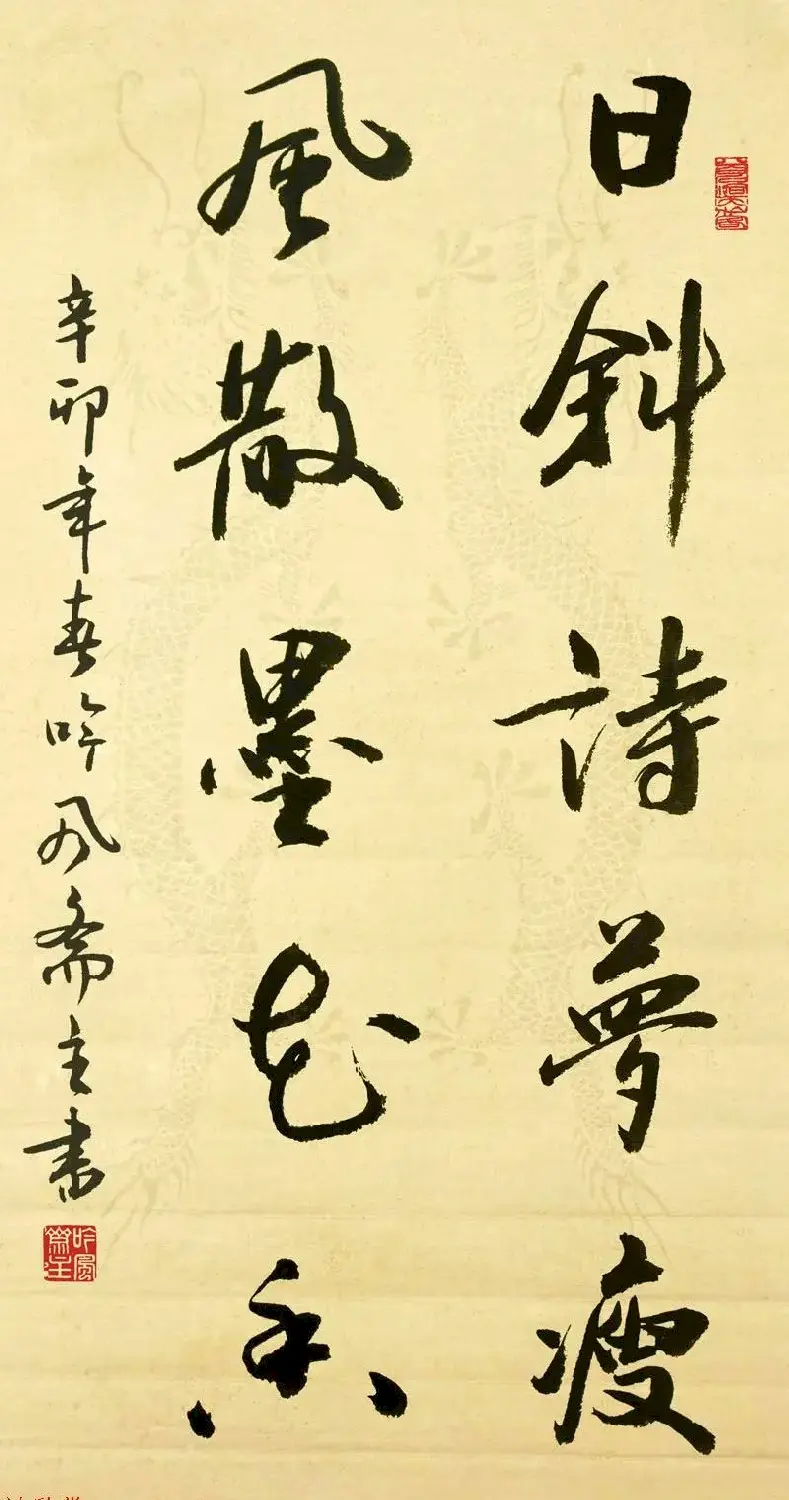 日斜詩夢瘦
風散墨花香
辛卯年春吟风斋主书
吟風齋主